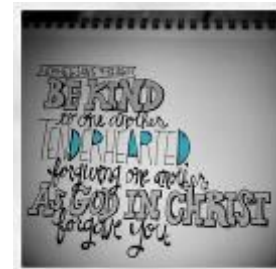 BE KIND
to one another
TENDERHEARTED
forgiving one another
AS GOD IN CHRIST
forgave you